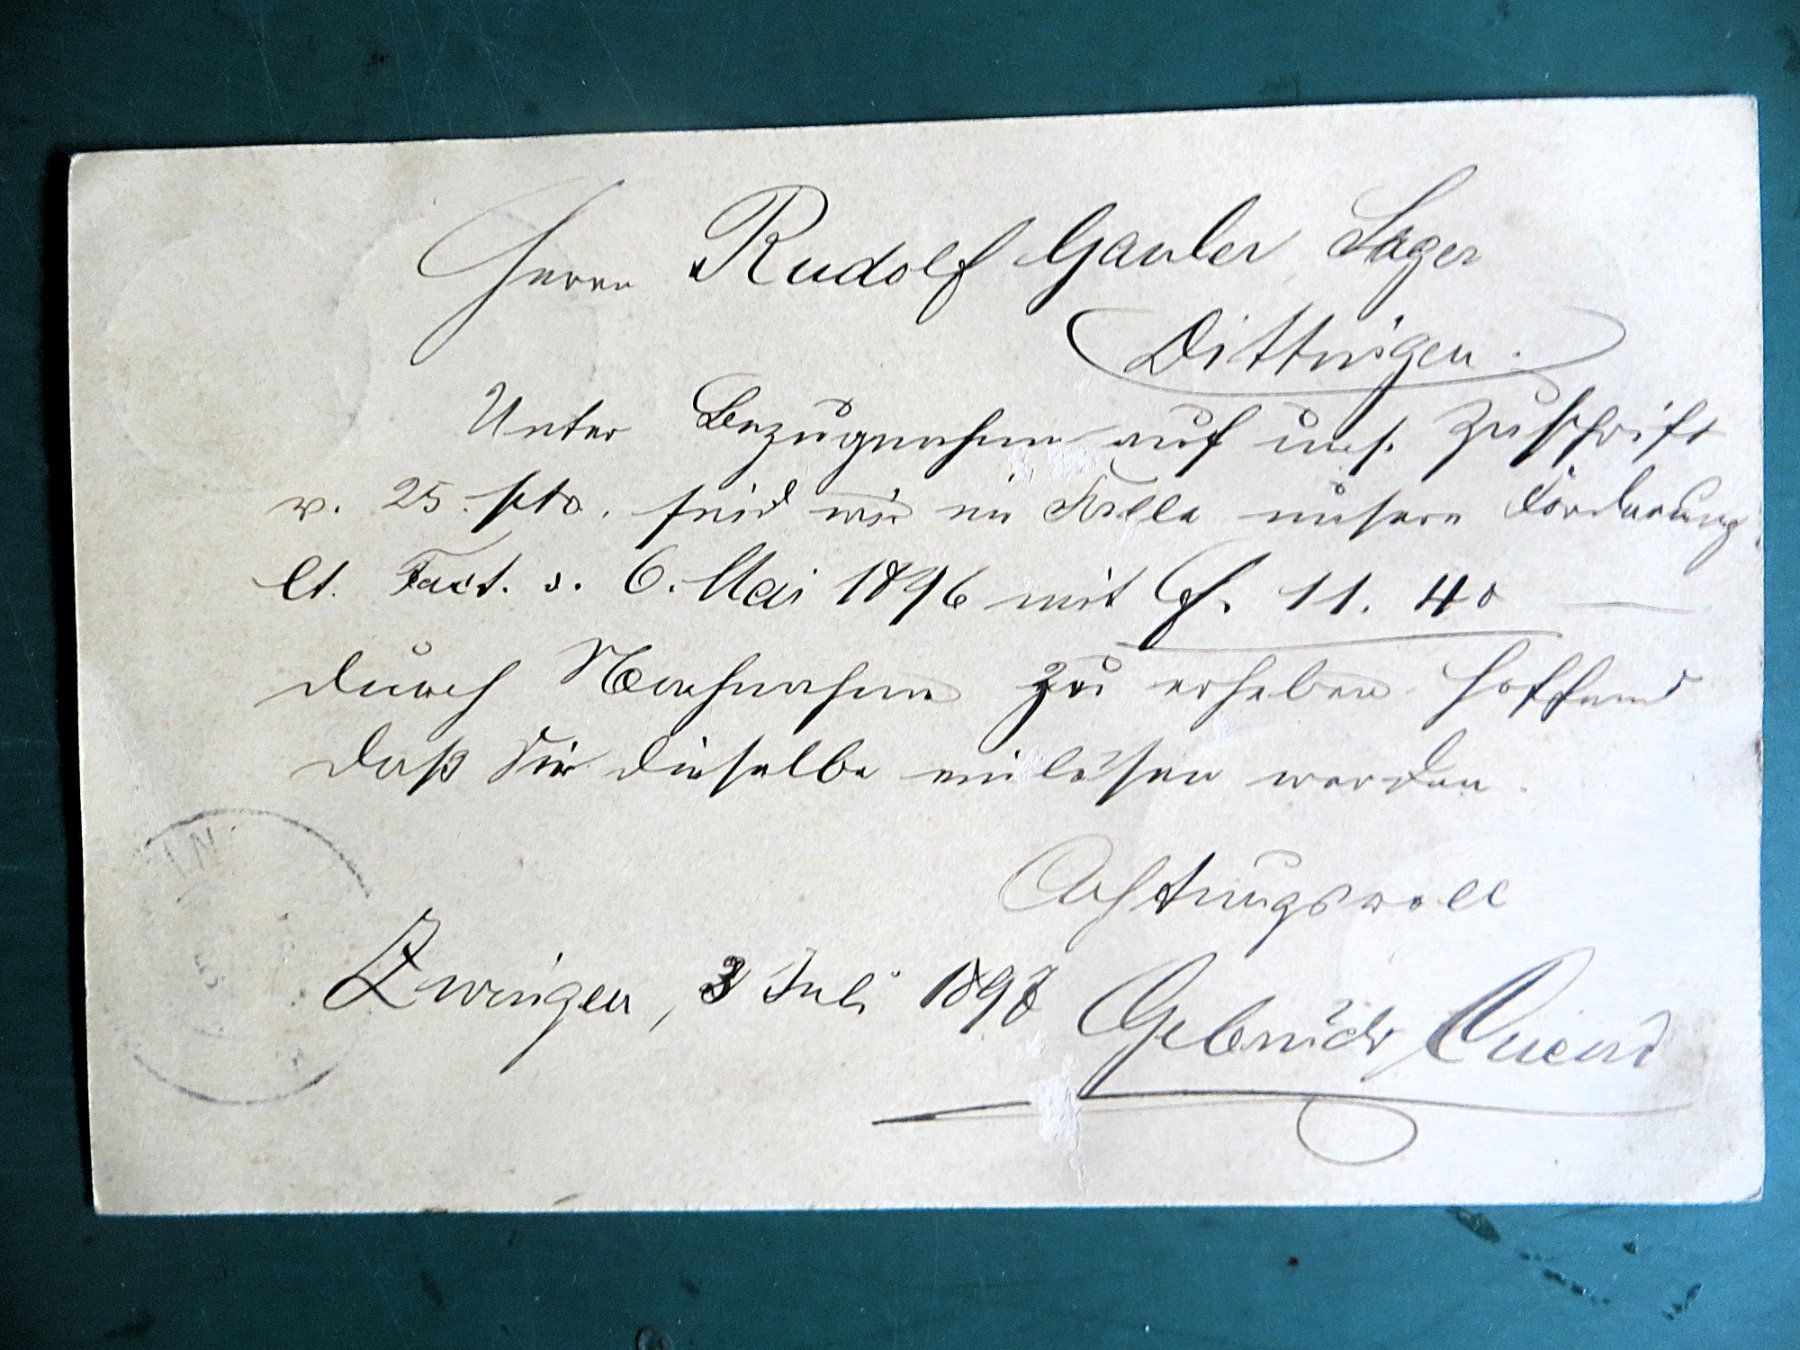 Herrn Rudolf Gauler Säger
Dittingen.
Unter Bezugnahme auf uns. Zuschrift
v. 25. pto. sind wir im Falle unsere Forderung
lt. Fact. v. 6. Mai 1896 mit f. 11. 40
durch Nachnahme zu erheben hoffend
daß Sie dieselbe einlösen werden.
Achtungsvoll
Zwingen, 3 Juli 1897 Gebrüder